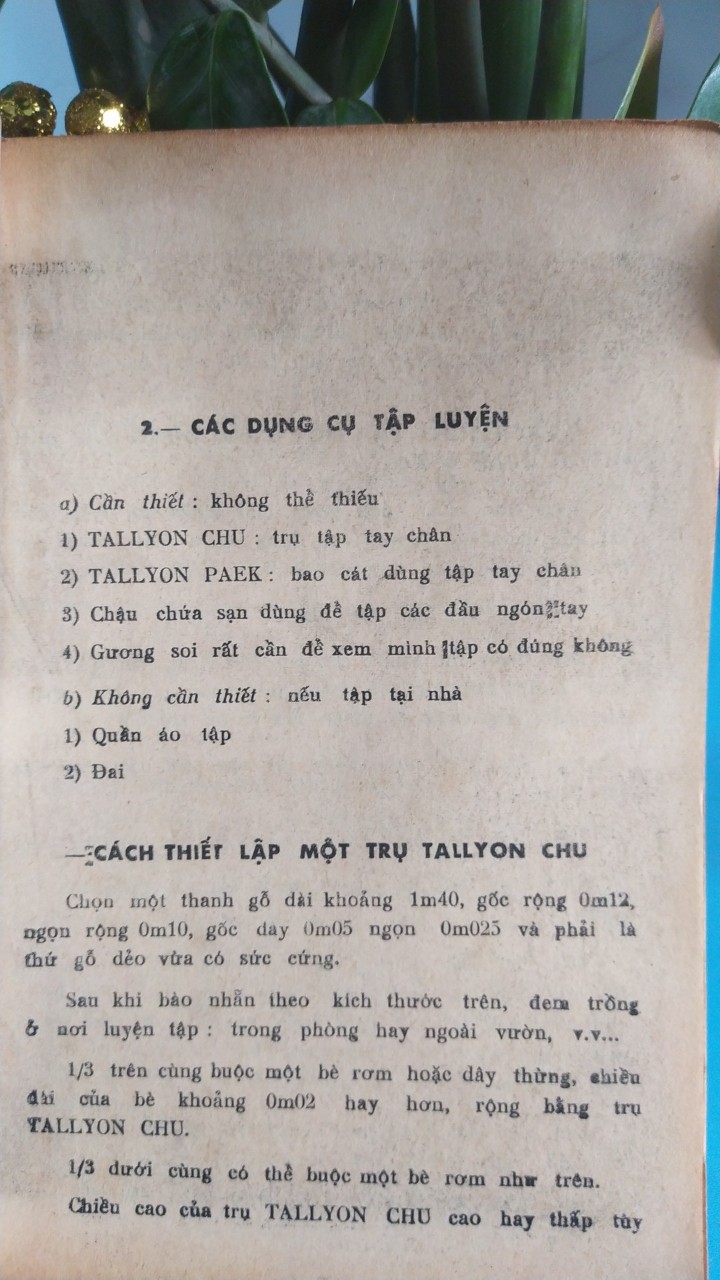 2.— CÁC DỤNG CỤ TẬP LUYỆN
a) Cần thiết : không thể thiếu
1) TALLYON CHU : trụ tập tay chân
2) TALLYON PAEK : bao cát dùng tập tay chân
3) Chậu chứa sạn dùng để tập các đầu ngón tay
4) Gương soi rất cần để xem mình tập có đúng không
b) Không cần thiết : nếu tập tại nhà
1) Quần áo tập
2) Đai
— CÁCH THIẾT LẬP MỘT TRỤ TALLYON CHU
Chọn một thanh gỗ dài khoảng 1m40, gốc rộng 0m12,
ngọn rộng 0m10, gốc day 0m05 ngọn 0m025 và phải là
thứ gỗ dẻo vừa có sức cứng.
Sau khi bào nhẵn theo kích thước trên, đem trồng
ở nơi luyện tập : trong phòng hay ngoài vườn, v.v...
1/3 trên cùng buộc một bè rơm hoặc dây thừng, chiều
dài của bè khoảng 0m02 hay hơn, rộng bằng trụ
TALLYON CHU.
1/3 dưới cùng có thể buộc một bè rơm như trên.
Chiều cao của trụ TALLYON CHU cao hay thấp tùy